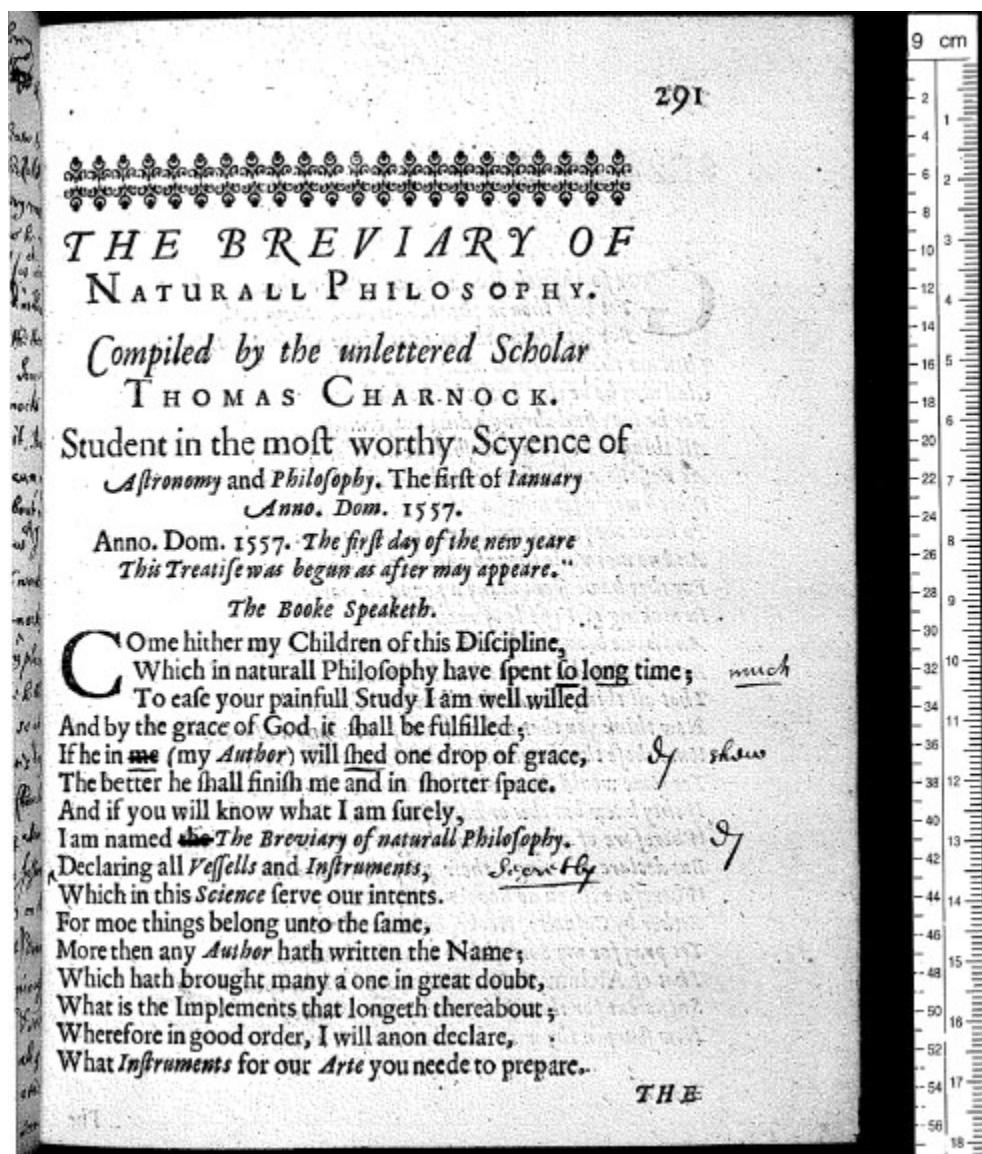 291
THE BREVIARY OF
NATURALL PHILOSOPHY.
Compiled by the unlettered Scholar
THOMAS CHARNOCK.
Student in the moſt worthy Scyence of
Aſtronomy and Philoſophy. The firſt of Ianuary
Anno. Dom. 1557.
Anno. Dom. 1557. The firſt day of the new yeare
This Treatiſe was begun as after may appeare."
The Booke Speaketh.
COme hither my Children of this Diſcipline,
Which in naturall Philoſophy have ſpent ſo long time; much
To eaſe your painfull Study I am well willed
And by the grace of God it ſhall be fulfilled;
If he in me (my Author) will ſhed one drop of grace, show
The better he ſhall finiſh me and in ſhorter ſpace.
And if you will know what I am ſurely,
I am named the The Breviary of naturall Philoſophy.
Declaring all Veſſells and Inſtruments, Secretly
Which in this Science ſerve our intents.
For moe things belong unto the ſame,
More then any Author hath written the Name;
Which hath brought many a one in great doubt,
What is the Implements that longeth thereabout;
Wherefore in good order, I will anon declare,
What Inſtruments for our Arte you neede to prepare.
THE
9 cm
2
4
6
8
10
12
14
16
18
20
22
24
26
28
30
32
34
36
38
40
42
44
46
48
50
52
54
56
1
2
3
4
5
6
7
8
9
10
11
12
13
14
15
16
17
18